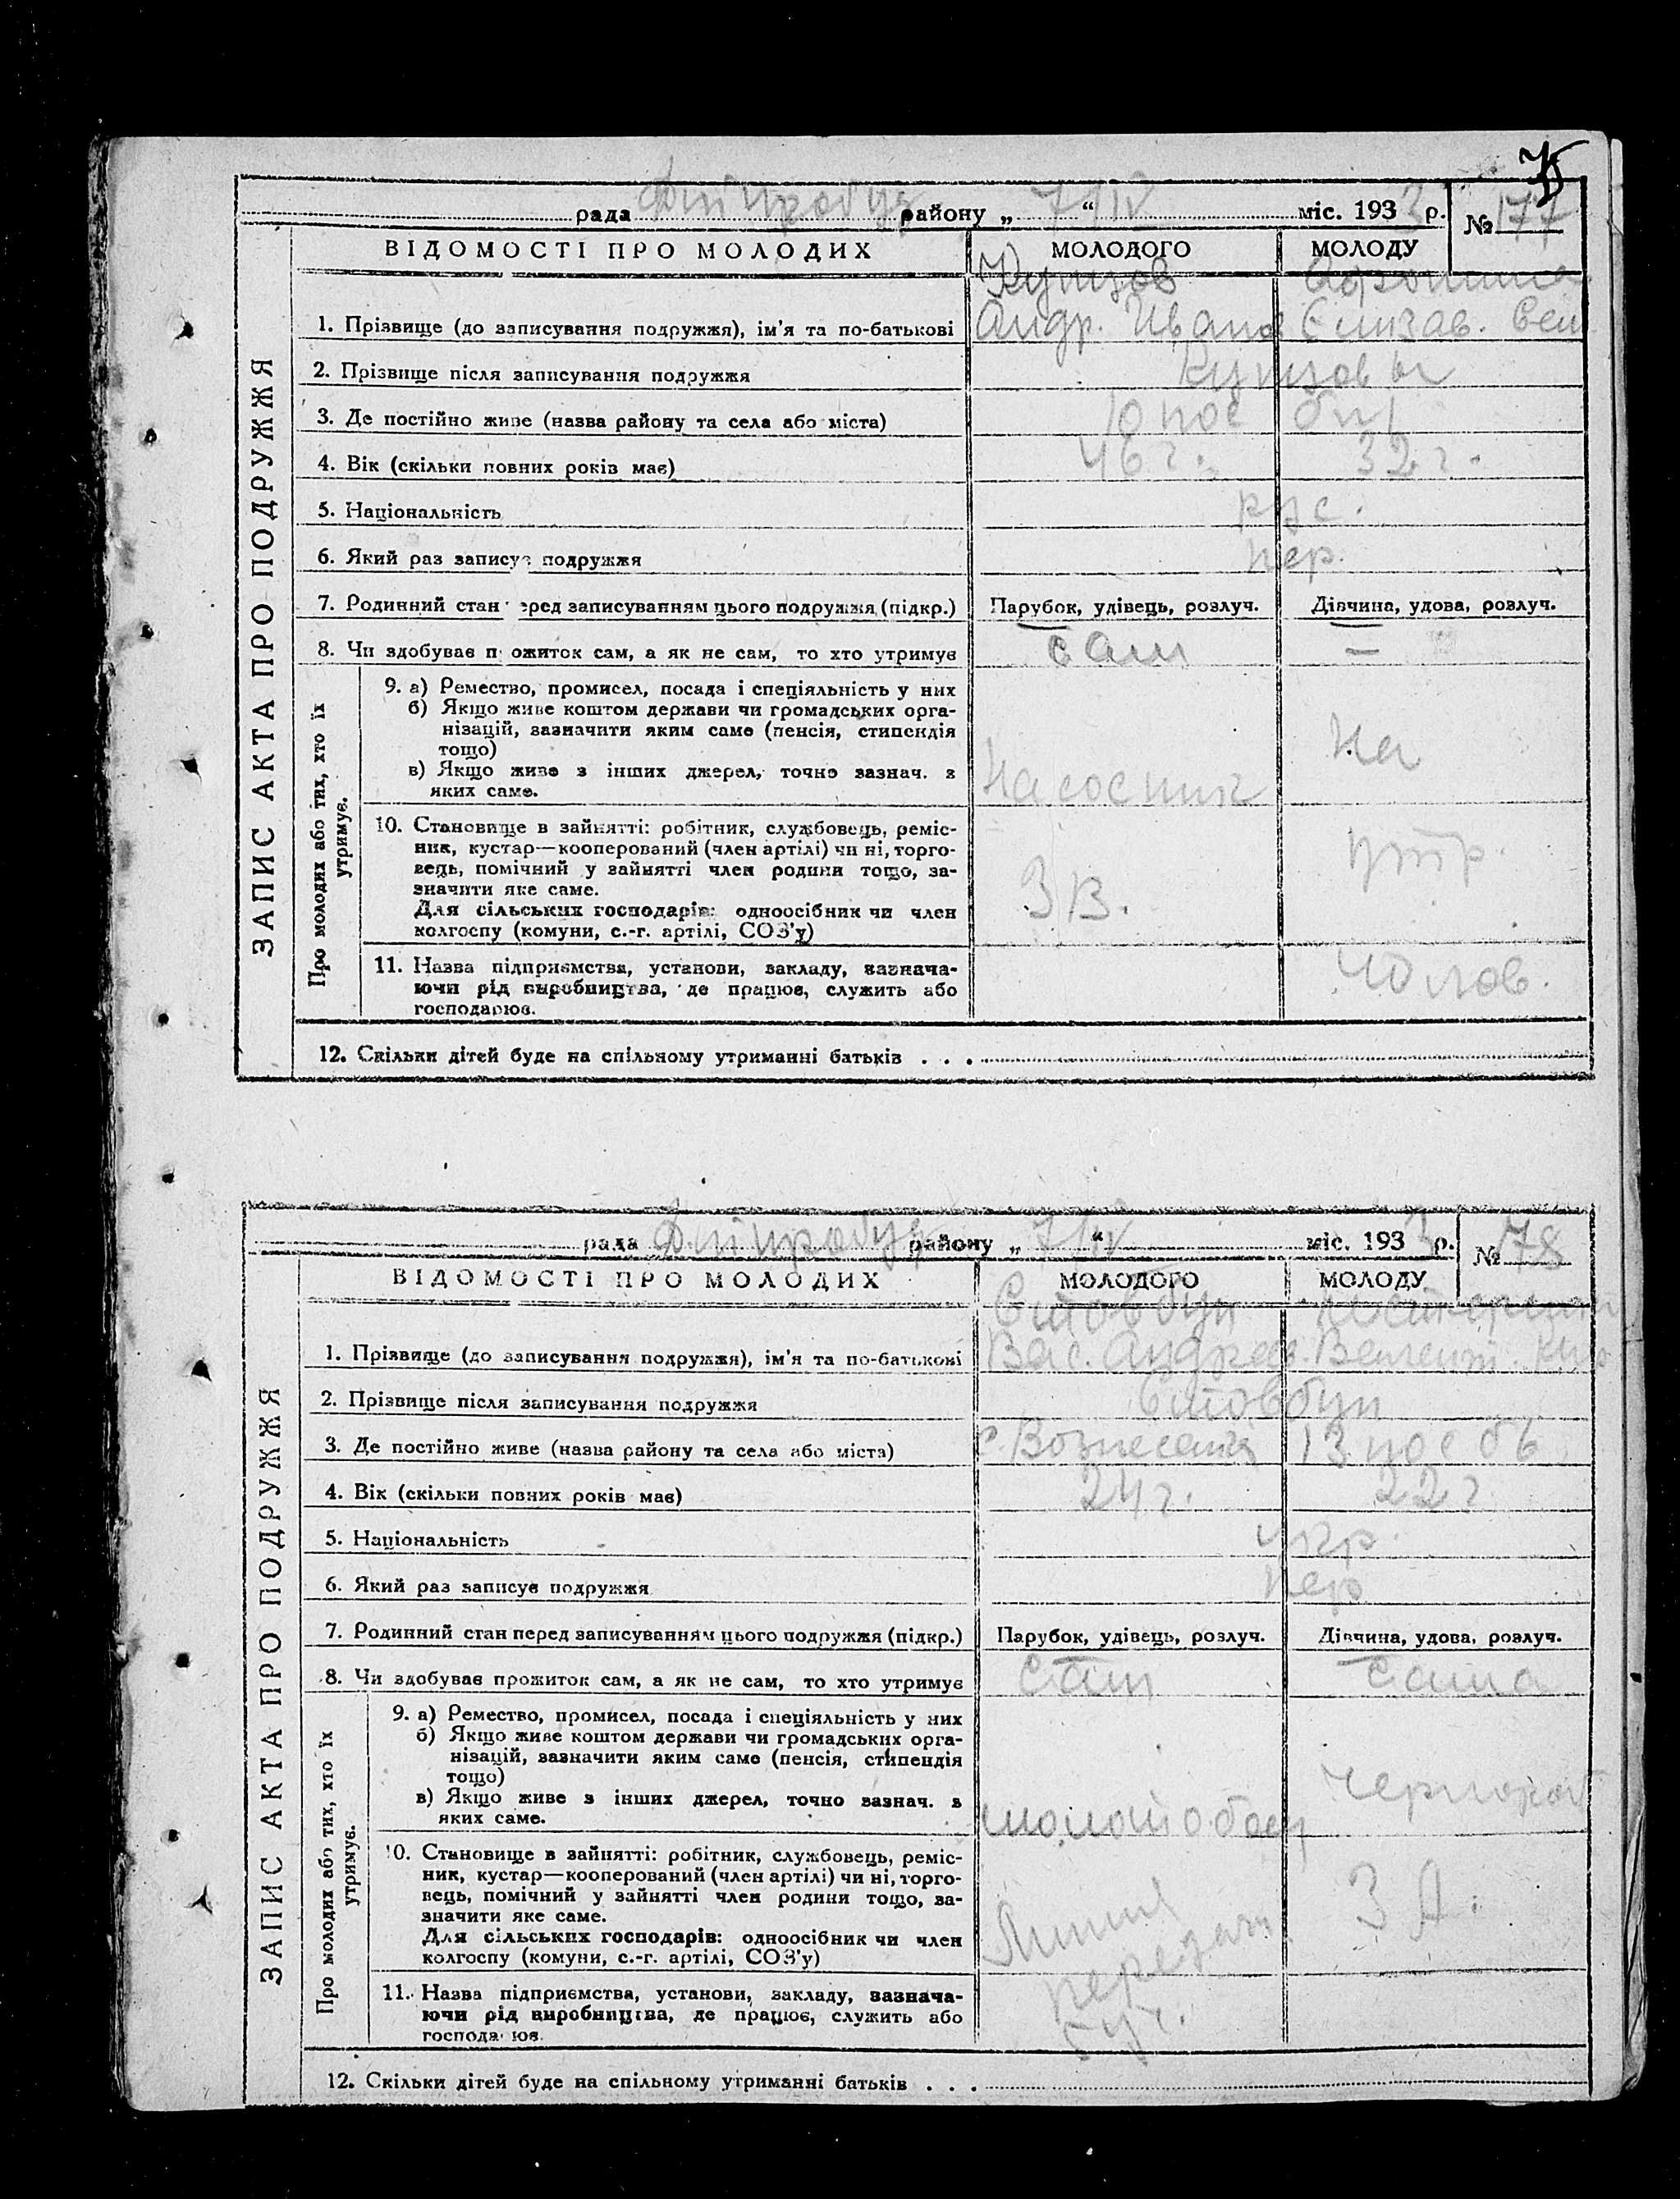 рада Дніпробуд району „ 7/IV “ міс. 1933 р. № 177
ВІДОМОСТІ ПРО МОЛОДИХ МОЛОДОГО МОЛОДУ
ЗАПИС АКТА ПРО ПОДРУЖЖЯ
Купцов Афонина
1. Прізвище (до записування подружжя), ім'я та по-батькові Андр. Иванов Елизав. Сем
2. Прізвище після записування подружжя Купцовы
3. Де постійно живе (назва району та села або міста) 10 пос
4. Вік (скільки повних років має) 46 г. 32 г.
5. Національність рус.
6. Який раз записує подружжя пер.
7. Родинний стан перед записуванням цього подружжя (підкр.) Парубок, удівець, розлуч. Дівчина, удова, розлуч.
8. Чи здобував прожиток сам, а як не сам, то хто утримує сам —
Про молодих або тих, хто їх утримує.
9. а) Ремество, промисел, посада і спеціяльність у них
б) Якщо живе коштом держави чи громадських орга-
нізацій, зазначити яким саме (пенсія, стипендія
тощо) на
в) Якщо живе з інших джерел, точно зазнач. з
яких саме. Насосник
10. Становище в зайнятті: робітник, службовець, реміс-
ник, кустар—кооперований (член артілі) чи ні, торго-
вець, помічний у зайнятті член родини тощо, за- утр.
значити яке саме. ЗВ.
Для сільських господарів: одноосібник чи член
колгоспу (комуни, с.-г. артілі, СОЗ'у)
11. Назва підприємства, установи, закладу, зазнача- чолов.
ючи рід виробництва, де працює, служить або
господарює.
12. Скільки дітей буде на спільному утриманні батьків . . .
рада Дніпробуд району „ 7/IV “ міс. 1933 р. № 178
ВІДОМОСТІ ПРО МОЛОДИХ МОЛОДОГО МОЛОДУ
ЗАПИС АКТА ПРО ПОДРУЖЖЯ
Стовбун
1. Прізвище (до записування подружжя), ім'я та по-батькові Вас. Андреев.
2. Прізвище після записування подружжя Стовбун
3. Де постійно живе (назва району та села або міста) 13 пос
4. Вік (скільки повних років має) 24 г. 22 г.
5. Національність укр.
6. Який раз записує подружжя пер
7. Родинний стан перед записуванням цього подружжя (підкр.) Парубок, удівець, розлуч. Дівчина, удова, розлуч.
8. Чи здобував прожиток сам, а як не сам, то хто утримує сам сама
Про молодих або тих, хто їх утримує.
9. а) Ремество, промисел, посада і спеціяльність у них
б) Якщо живе коштом держави чи громадських орга-
нізацій, зазначити яким саме (пенсія, стипендія
тощо)
в) Якщо живе з інших джерел, точно зазнач. з чернороб
яких саме. молотобоец
10. Становище в зайнятті: робітник, службовець, реміс-
ник, кустар—кооперований (член артілі) чи ні, торго-
вець, помічний у зайнятті член родини тощо, за-
значити яке саме. Линия
Для сільських господарів: одноосібник чи член
колгоспу (комуни, с.-г. артілі, СОЗ'у) передач
11. Назва підприємства, установи, закладу, зазнача-
ючи рід виробництва, де працює, служить або
господарює.
12. Скільки дітей буде на спільному утриманні батьків . . .